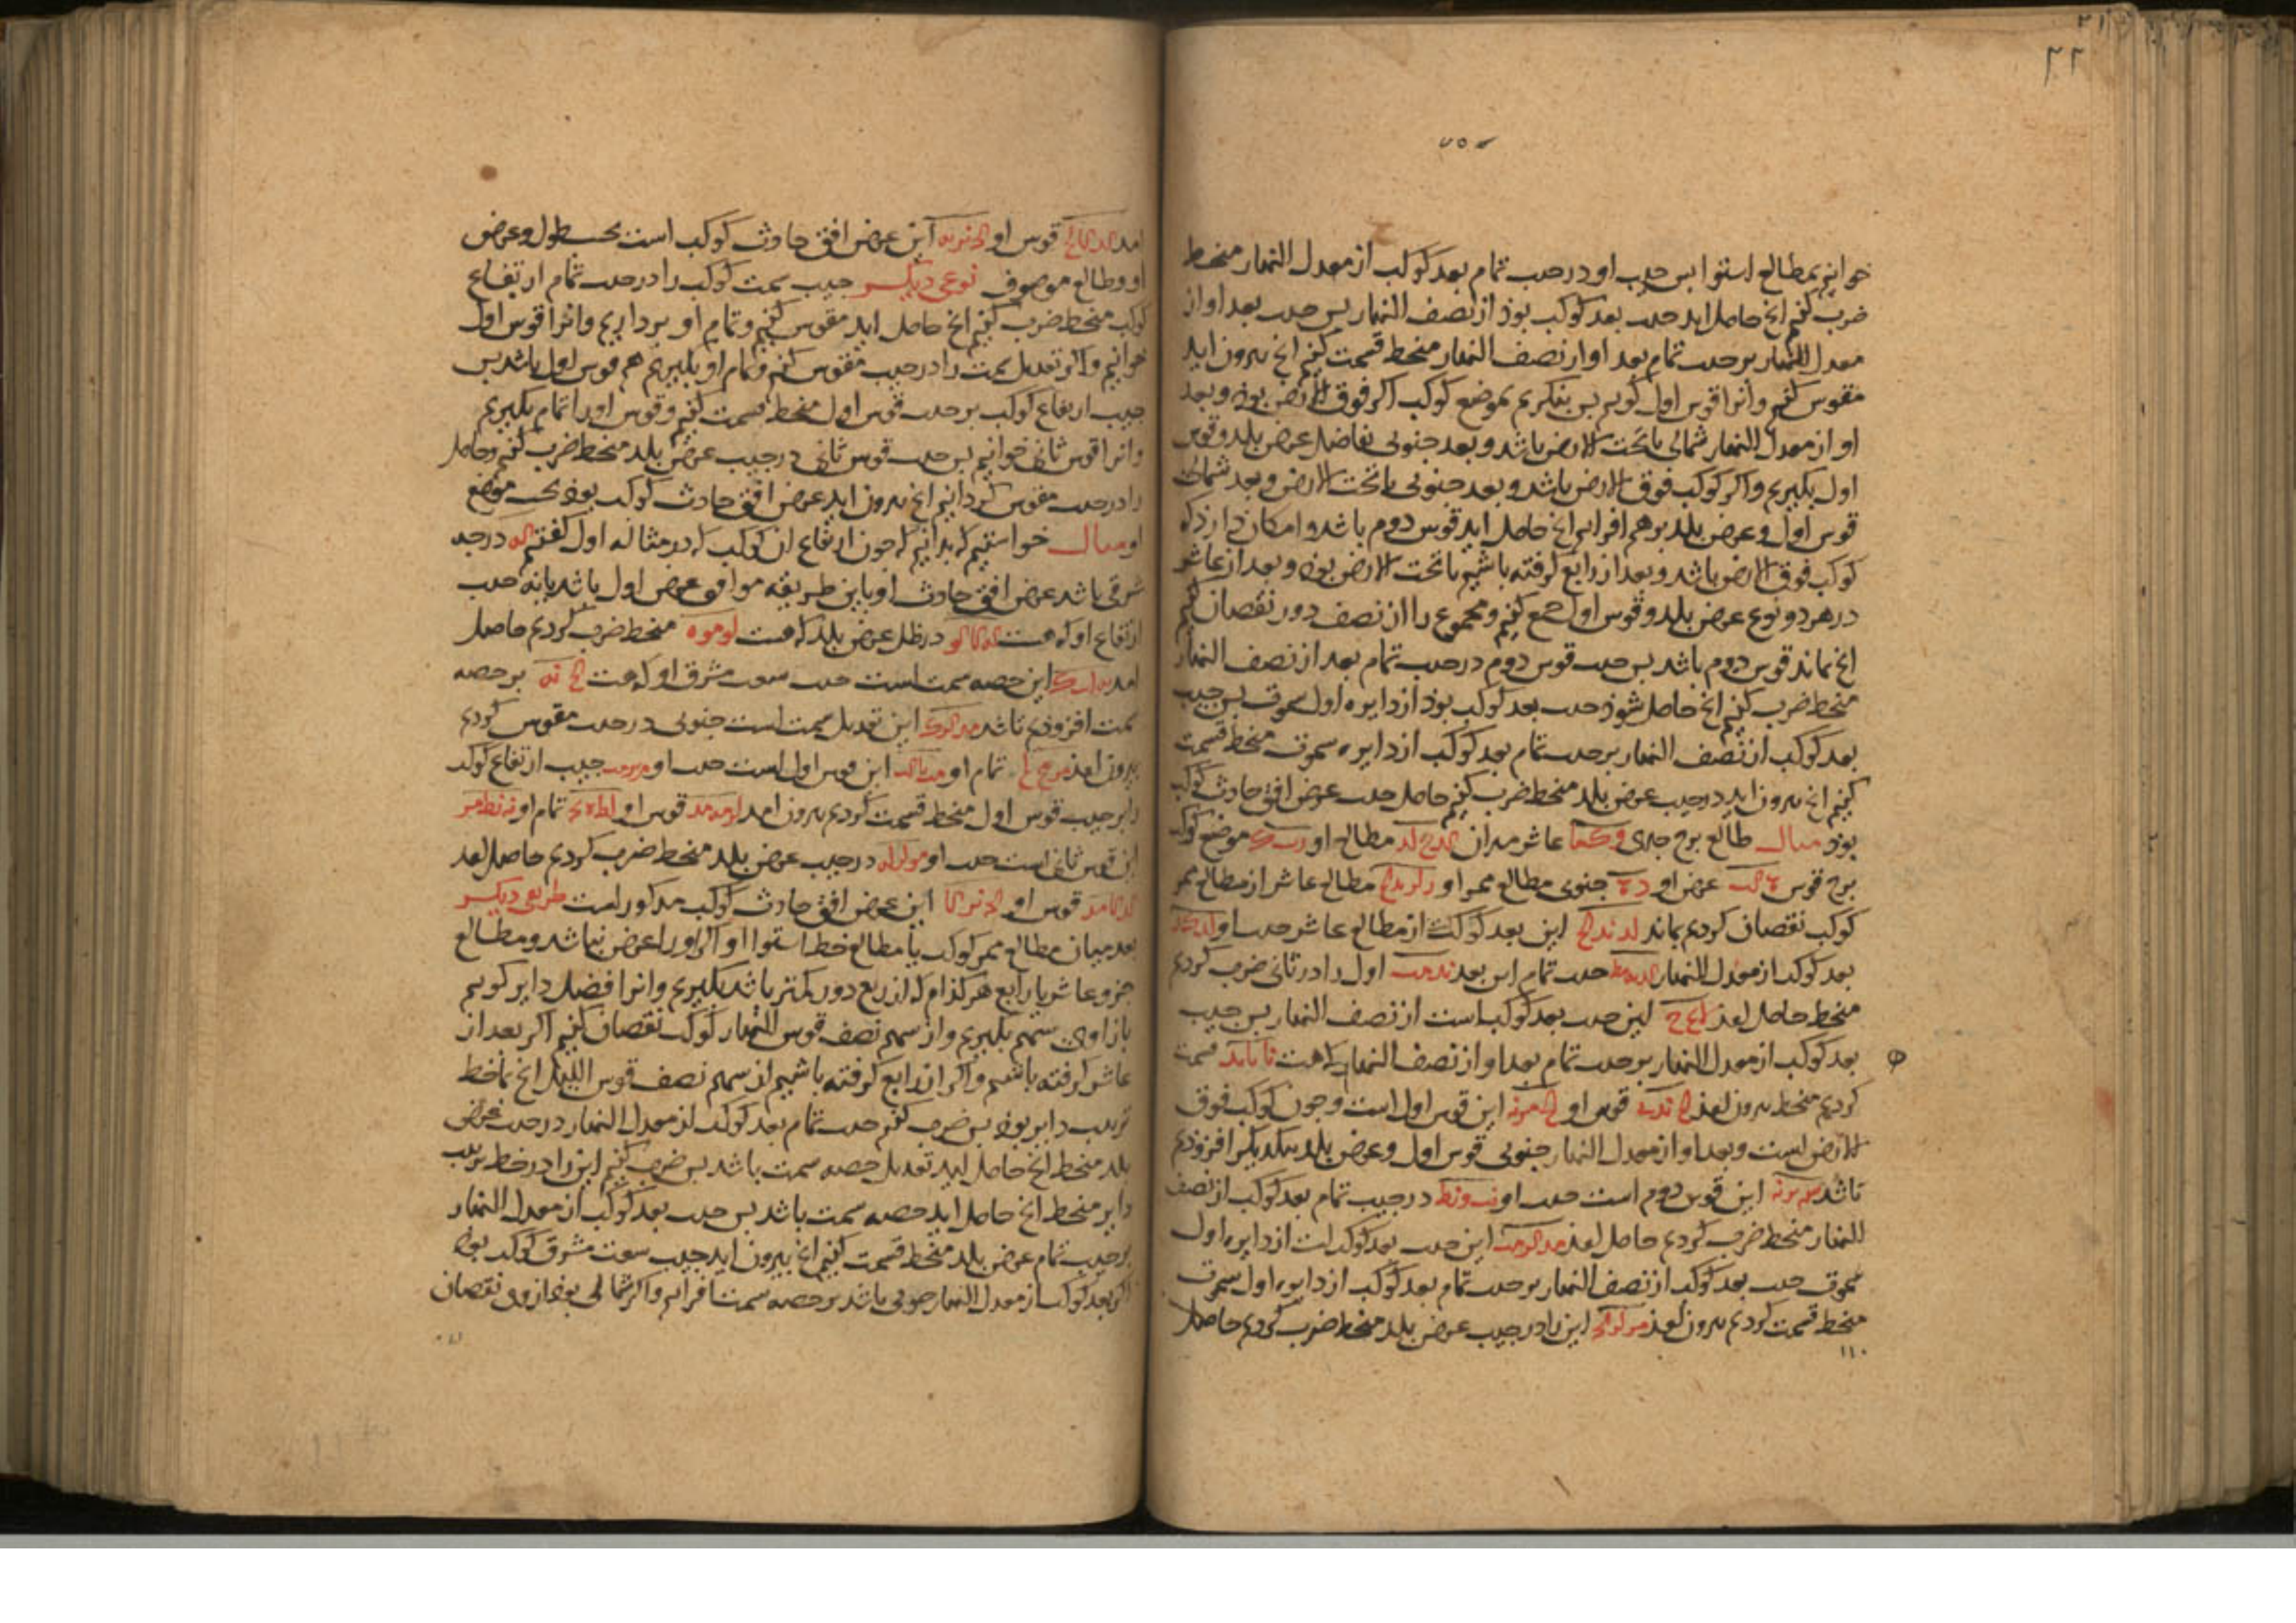 ۲۱
۲۲
خوانیم بمطالع استوا پس جیب او در جیب تمام بعد کوکب از معدل النهار منحط
ضرب کنیم انچ حاصل اید جیب بعد کوکب بوذ از نصف النهار پس جیب بعد او از
معدل النهار بر جیب تمام بعد او از نصف النهار منحط قسمت کنیم انچ بیرون اید
مقوس کنیم وانرا قوس اول کویم پس بنکریم بموضع کوکب اکر فوق الارض بوذ و بعد
او از معدل النهار شمالی یا تحت الارض باشد و بعد جنوبی تفاضل عرض بلد و قوس
اول بکیریم واکر کوکب فوق الارض باشد و بعد جنوبی یا تحت الارض و بعد شمالی
قوس اول و عرض بلد برهم افزاییم انچ حاصل اید قوس دوم باشد و امکان دارد که
کوکب فوق الارض باشد و بعد از رابع کرفته باشیم یا تحت الارض بوذ و بعد از عاشر
در هر دو نوع عرض بلد و قوس اول جمع کنیم و مجموع را از نصف دور نقصان کنیم
انچ بماند قوس دوم باشد پس جیب قوس دوم در جیب تمام بعد از نصف النهار
منحط ضرب کنیم انچ حاصل شوذ جیب بعد کوکب بوذ از دایره اول سموت پس جیب
بعد کوکب از نصف النهار بر جیب تمام بعد کوکب از دایره سموت منحط قسمت
کنیم انچ بیرون اید در جیب عرض بلد منحط ضرب کنیم حاصل جیب عرض افق حادث کوکب
بوذ مثال طالع برج جدی عاشر میزان مطالع او موضع کوکب
برج قوس عرض او جنوبی مطالع ممر او مطالع عاشر از مطالع ممر
کوکب نقصان کردیم بماند این بعد کوکب از مطالع عاشر جیب او
بعد کوکب از معدل النهار جیب تمام این بعد اول را در ثانی ضرب کردیم
منحط حاصل امذ این جیب بعد کوکب است از نصف النهار پس جیب
بعد کوکب از معدل النهار بر جیب تمام بعد او از نصف النهار که هست قسمت
کردیم منحط بیرون امذ قوس او این قوس اول است و جون کوکب فوق
الارض است و بعد او از معدل النهار جنوبی قوس اول و عرض بلد بیکدیکر افزوذیم
تا شد این قوس دوم است جیب او در جیب تمام بعد کوکب از نصف
النهار منحط ضرب کردیم حاصل امذ این جیب بعد کوکب است از دایره اول
سموت جیب بعد کوکب از نصف النهار بر جیب تمام بعد کوکب از دایره اول سموت
منحط قسمت کردیم بیرون امذ این را در جیب عرض بلد منحط ضرب کردیم حاصل
۱۱۰
امد قوس او این عرض افق حادث کوکب است بحسب طول و عرض
او و طالع موصوف نوعی دیکر جیب سمت کوکب را در جیب تمام ارتفاع
کوکب منحط ضرب کنیم انچ حاصل اید مقوس کنیم و تمام او برداریم وانرا قوس اول
خوانیم واکر تعدیل سمت را در جیب مقوس کنیم و تمام او بکیریم هم قوس اول باشد پس
جیب ارتفاع کوکب بر جیب قوس اول منحط قسمت کنیم و قوس اورا تمام بکیریم
وانرا قوس ثانی خوانیم پس جیب قوس ثانی در جیب عرض بلد منحط ضرب کنیم و حاصل
را در جیب مقوس کردانیم انچ بیرون اید عرض افق حادث کوکب بوذ بحسب موضع
او مثال خواستیم که بدانیم که جون ارتفاع ان کوکب که در مثاله اول کفتیم درجه
شرقی باشد عرض افق حادث او باین طریقه موافق عرض اول باشد یا نه جیب
ارتفاع او که هست در ظل عرض بلد که هست منحط ضرب کردیم حاصل
امد این حصه سمت است جیب سعت مشرق او که هست بر حصه
سمت افزوذیم تا شد این تعدیل سمت است جنوبی در جیب مقوس کردیم
بیرون امذ تمام او این قوس اول است جیب او جیب ارتفاع کوکب
را بر جیب قوس اول منحط قسمت کردیم بیرون امد قوس او تمام او
این قوس ثانی است جیب او در جیب عرض بلد منحط ضرب کردیم حاصل امد
قوس او این عرض افق حادث کوکب مذکور است طریقی دیکر
بعد میان مطالع ممر کوکب یا مطالع خط استوا او اکر اورا عرض نباشد و مطالع
جزو عاشر یا رابع هر کذام که از ربع دور کمتر باشد بکیریم وانرا فضل دایر کوییم
بازا وی سهم بکیریم و از سهم نصف قوس النهار کوکب نقصان کنیم اکر بعد از
عاشر کرفته باشیم واکر از رابع کرفته باشیم از سهم نصف قوس اللیل انچ بماند خط
ترتیب دایر بوذ پس ضرب کنیم جیب تمام بعد کوکب از معدل النهار در جیب عرض
بلد منحط انچ حاصل اید تعدیل حصه سمت باشد پس ضرب کنیم این را در خط ترتیب
دایر منحط انچ حاصل اید حصه سمت باشد پس جیب بعد کوکب از معدل النهار
بر جیب تمام عرض بلد منحط قسمت کنیم انچ بیرون اید جیب سعت مشرق کوکب بوذ
اکر بعد کوکب از معدل النهار جنوبی باشد بر حصه سمت افزاییم واکر شمالی بوذ از وی نقصان